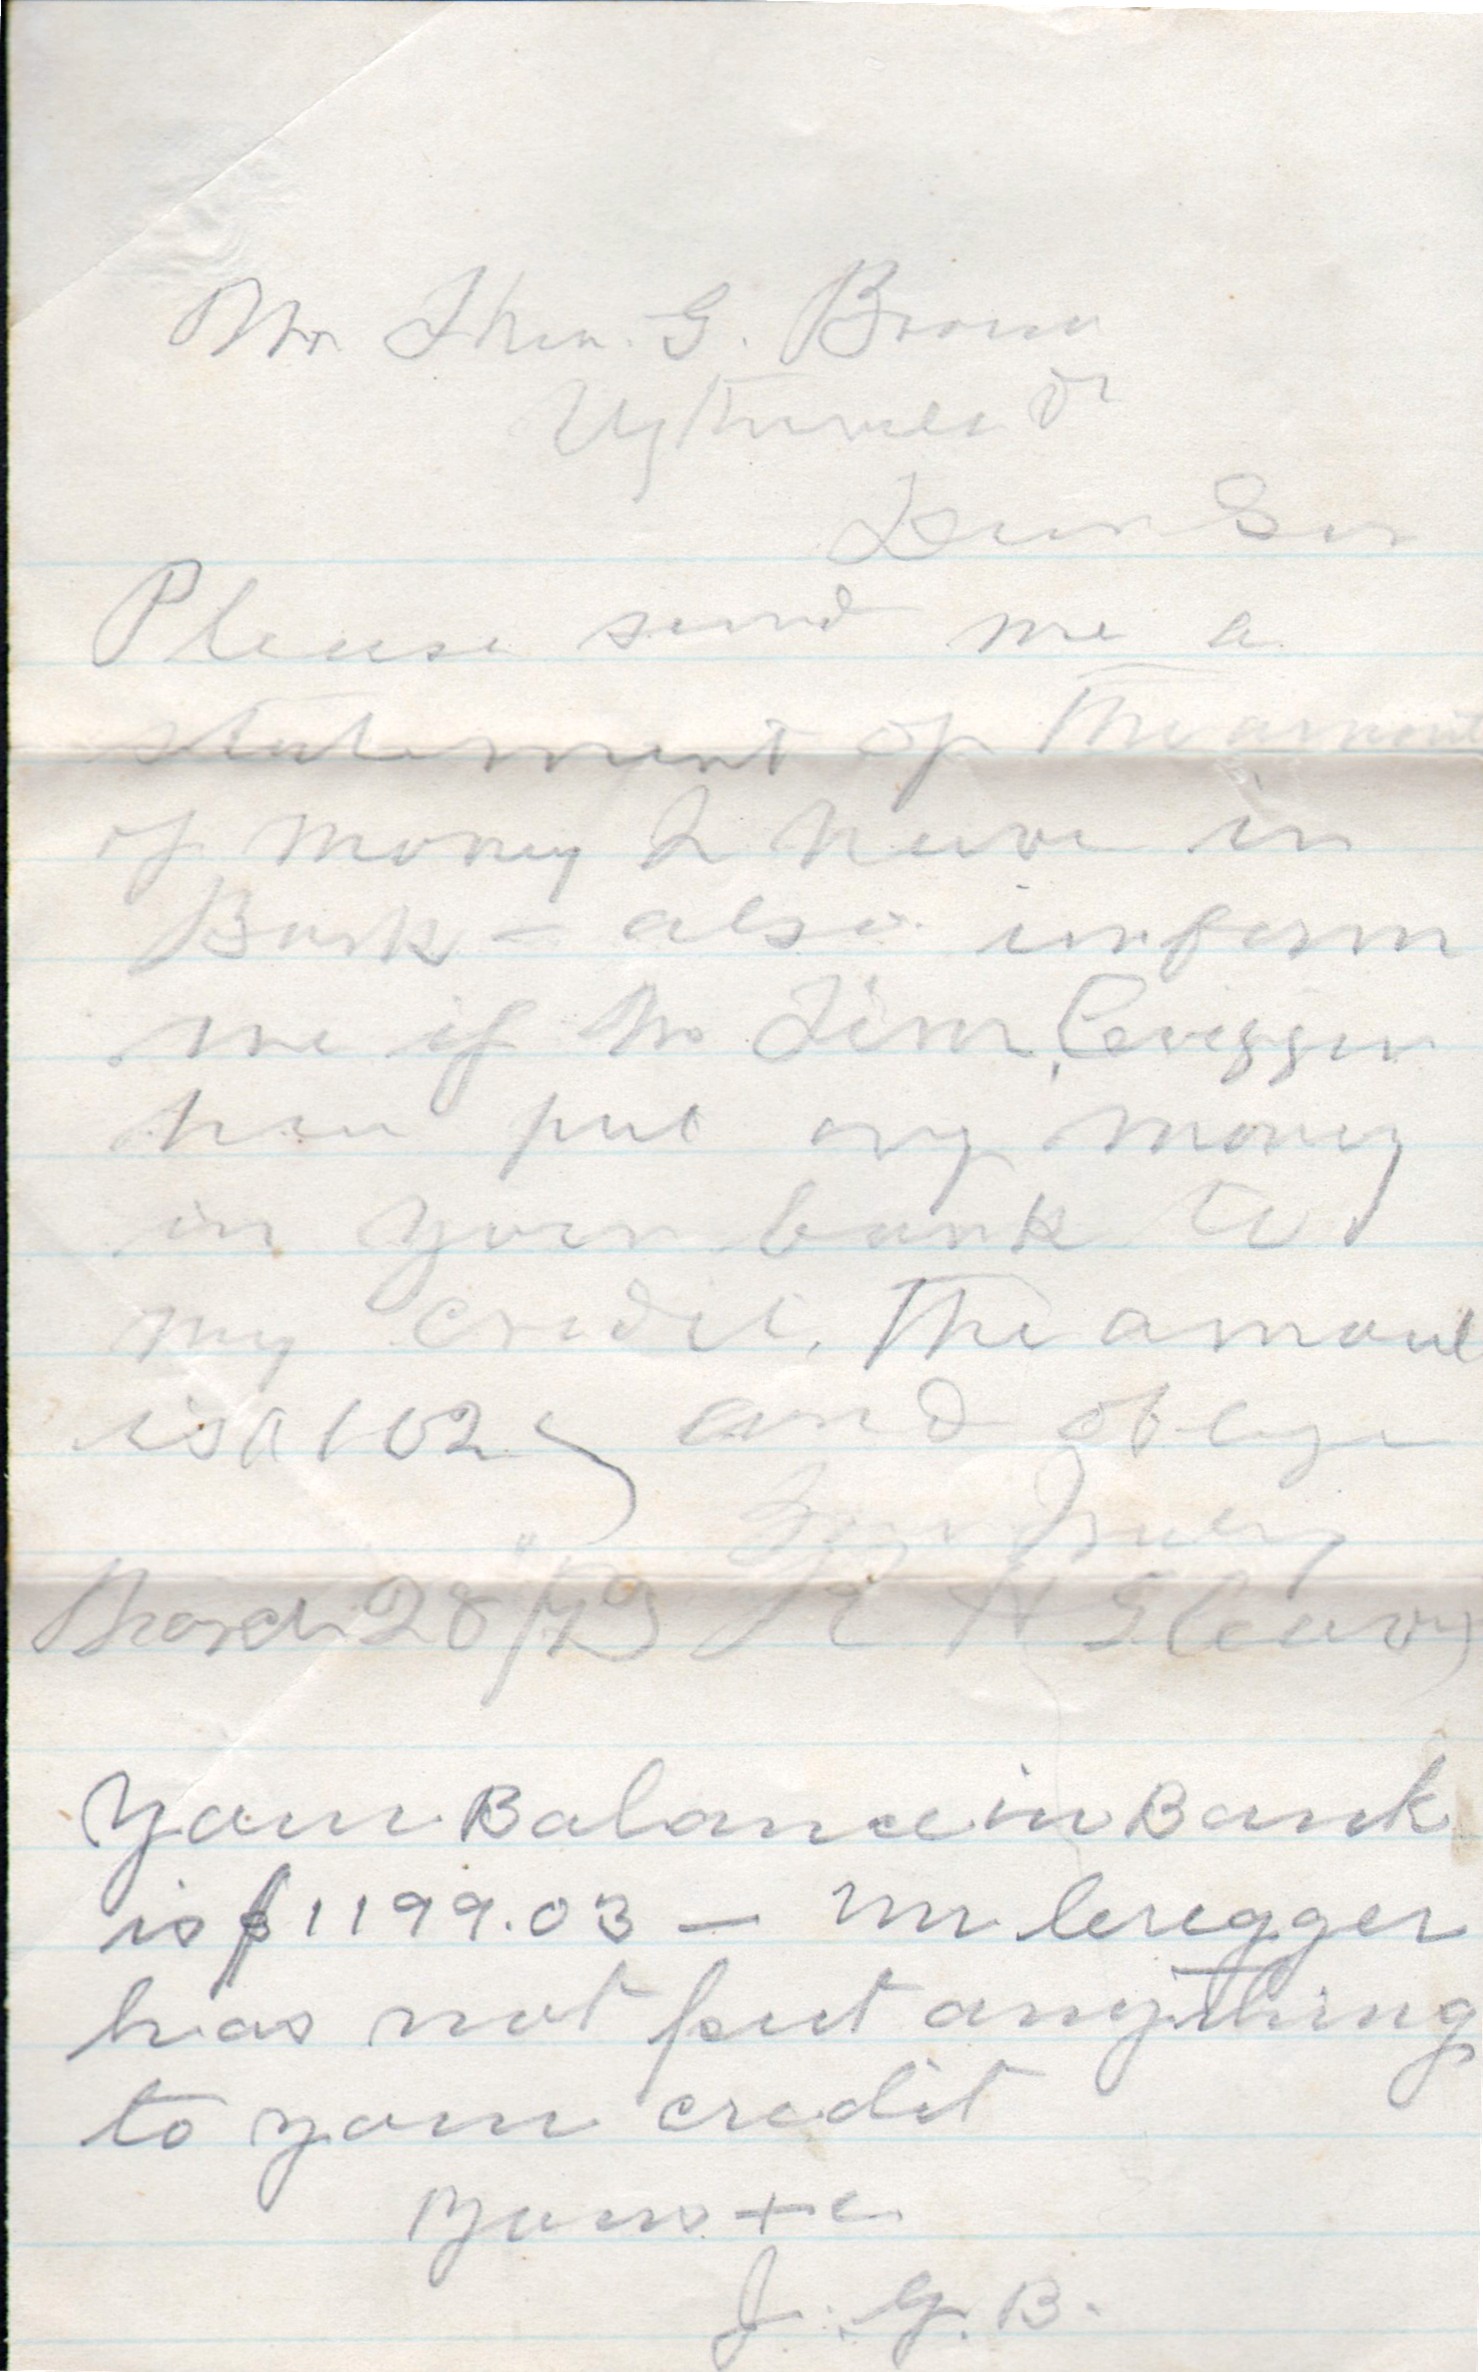 Mr Thos. G. Brown
Wytheville Va
Dear Sir
Please send me a
statement of the amount
of money I have in
Bank – also inform
me if Mr Jim Crigger
has put any money
in your bank to
my credit. The amount
is 102 and oblige
Your Truly
March 28 H Cleavy
Your Balance in Bank
is $1199.03 – Mr Crigger
has not put anything
to your credit
Yours +c
J. G. B.